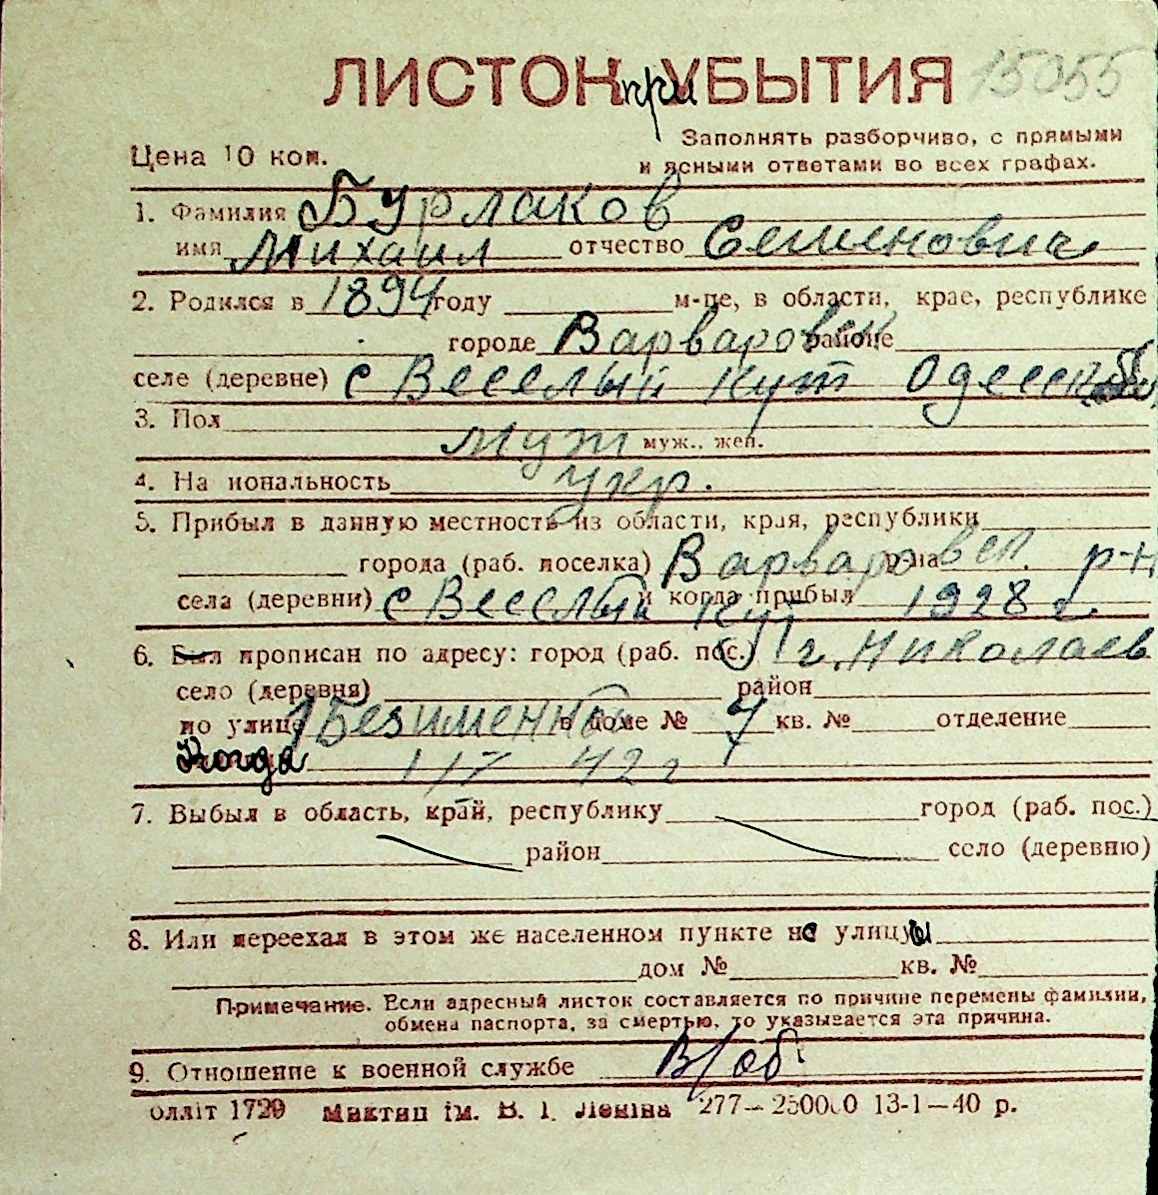 ЛИСТОК приУБЫТИЯ 15055
Заполнять разборчиво, с прямыми
Цена 10 коп. и ясными ответами во всех графах.
1. Фамилия Бурлаков
имя Михаил отчество Семенович
2. Родился в 1894 году м-це, в области, крае, республике
городе Варваровск районе
селе (деревне) с Веселый Кут Одесск обл
3. Пол муж муж.. жен.
4. На иональность укр.
5. Прибыл в данную местность из области, края, республики
города (раб. поселка) Варваровск. р-на р-н
села (деревни) с Веселый Кут и когда прибыл 1928 г.
6. Был прописан по адресу: город (раб. пос.) г. Николаев
село (деревня) район
по улице 1 Безименный в доме № 7 кв. № отделение
Когда 42 г
7. Выбыл в область, край, республику город (раб. пос.)
район село (деревню)
8. Или переехал в этом же населенном пункте не улицы
дом № кв. №
Примечание. Если адресный листок составляется по причине перемены фамилии,
обмена паспорта, за смертью, то указывается эта причина.
9. Отношение к военной службе В/об
олліт 1729 ім. В. І. Леніна 277—250000 13-1—40 р.